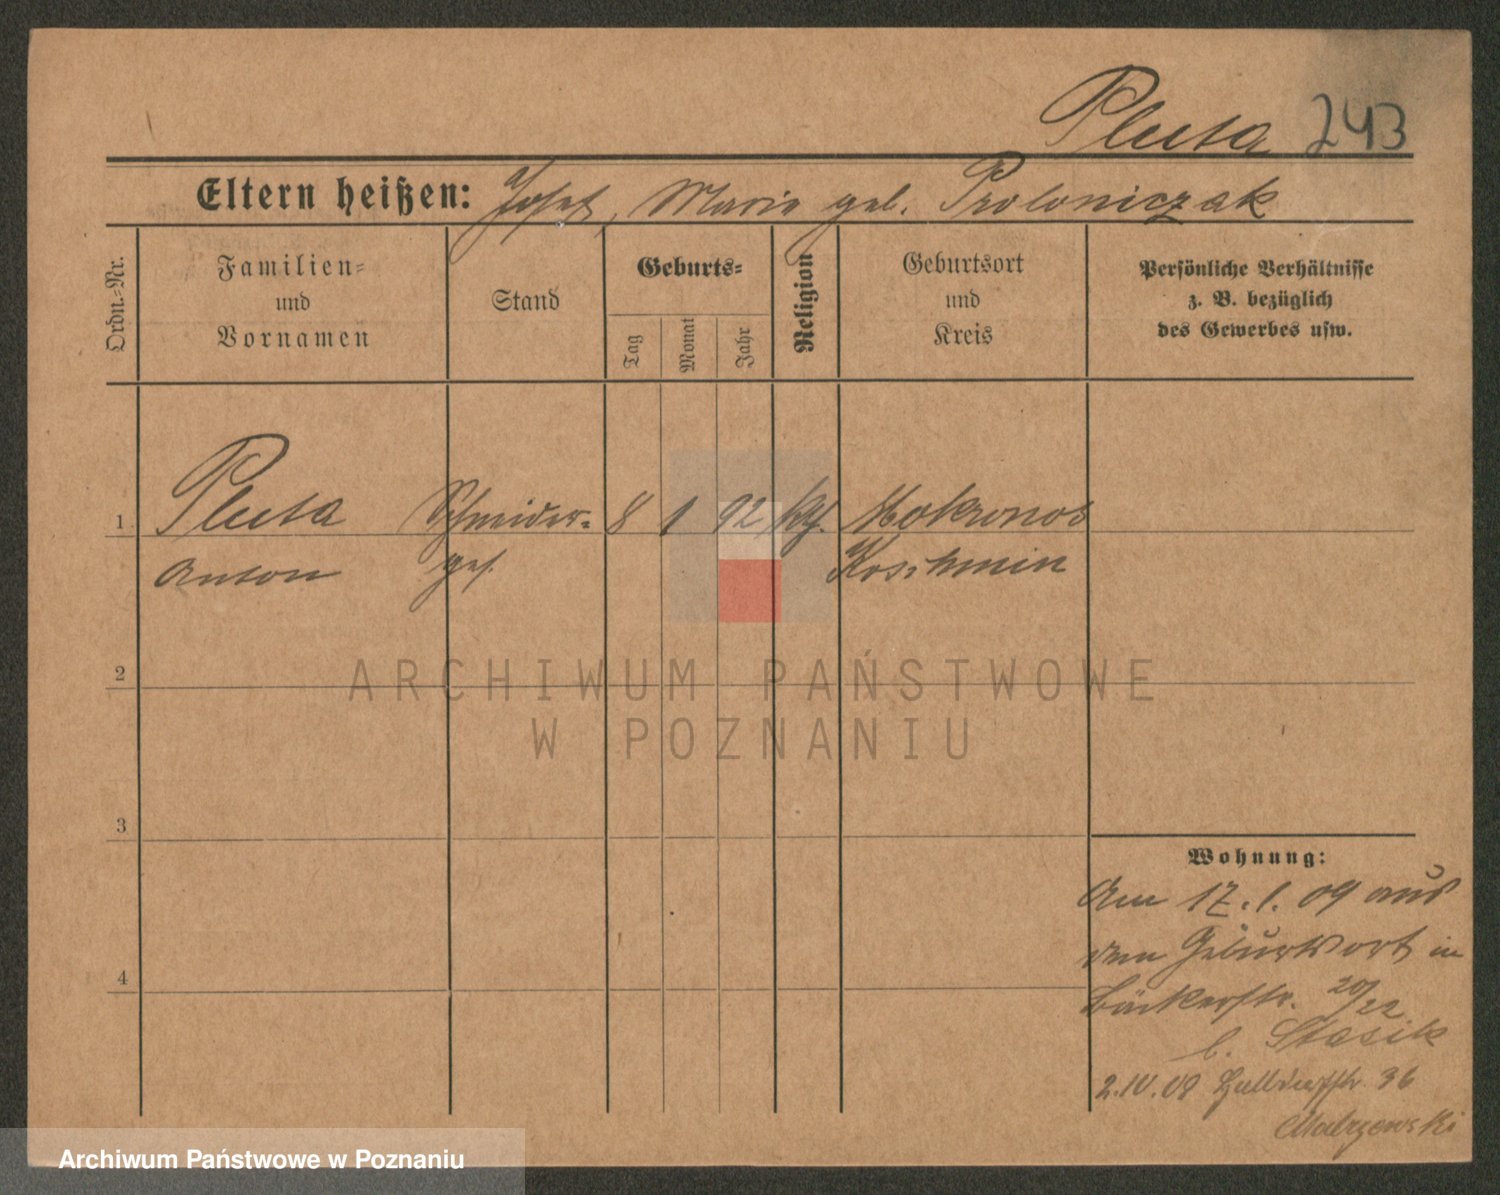 Pluta 243
Eltern heißen: Josef, Marie geb. Proloniczak
Ordn.-Nr.
Familien-
und
Vornamen
Stand
Geburts-
Tag
Monat
Jahr
Religion
Geburtsort
und
Kreis
Persönliche Verhältnisse
z. B. bezüglich
des Gewerbes usw.
1 Pluta Schneider- 8 1 92 kth. Mokronos
Anton ges. Koschmin
2
3
4
Wohnung:
Am 17.1.09 aus
dem Geburtsort in
Bäckerstr. 20/22
b. Stasik
2.IV.09 36
ARCHIWUM PAŃSTWOWE
W POZNANIU
Archiwum Państwowe w Poznaniu